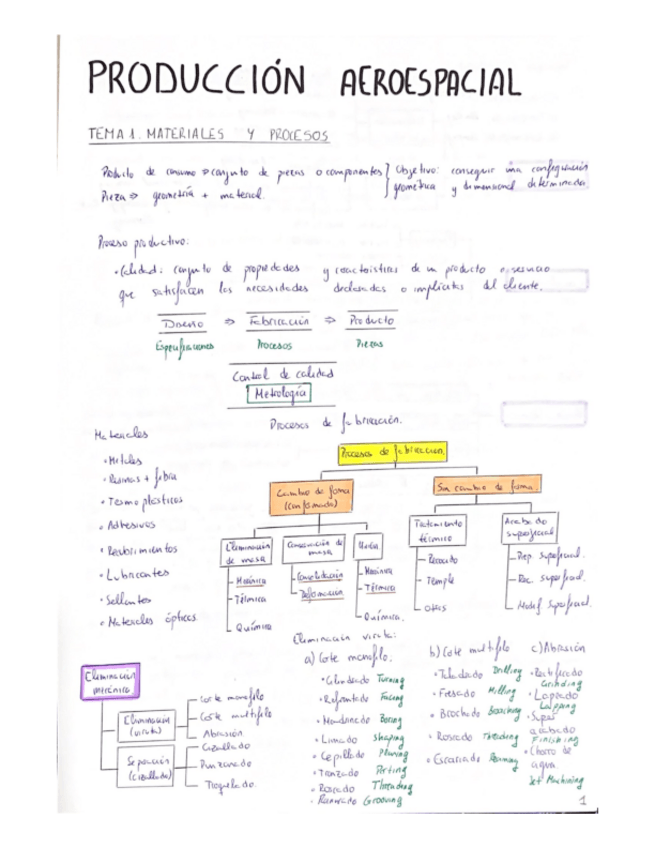 PRODUCCIÓN AEROESPACIAL
TEMA 1. MATERIALES Y PROCESOS
Producto de consumo ⇒ conjunto de piezas o componentes } Objetivo: conseguir una configuración
Pieza ⇒ geometría + material. } geométrica y dimensional determinada
Proceso productivo:
• Calidad: conjunto de propiedades y características de un producto o servicio
que satisfacen las necesidades declaradas o implícitas del cliente.
Diseño ⇒ Fabricación ⇒ Producto
Especificaciones Procesos Piezas
Control de calidad
Metrología
Procesos de fabricación.
Materiales
• Metales
• Resinas + fibra
• Termoplásticos
• Adhesivos
• Recubrimientos
• Lubricantes
• Sellantes
• Materiales ópticos
Procesos de fabricación.
Cambio de forma
(conformado)
Sin cambio de forma.
Eliminación
de masa
- Mecánica
- Térmica
- Química
Conservación de
masa
- Consolidación
- Deformación
Unión
- Mecánica
- Térmica
- Química.
Tratamiento
térmico
- Recocido
- Temple
- Otros
Acabado
superficial
- Prep. superficial.
- Rec. superficial.
- Modif superficial.
Eliminación
mecánica
Eliminación
(viruta)
- Corte monofilo
- Corte multifilo
- Abrasión
Separación
(cizallado)
- Cizallado
- Punzonado
- Troquelado.
Eliminación viruta:
a) Corte monofilo.
• Cilindrado Turning
• Refrentado Facing
• Mandrinado Boring
• Limado Shaping
• Cepillado Planing
• Tronzado Parting
• Roscado Threading
• Ranurado Grooving
b) Corte multifilo
• Taladrado Drilling
• Fresado Milling
• Brochado Broaching
• Roscado Threading
• Escariado Reaming
c) Abrasión
• Rectificado
Grinding
• Lapeado
Lapping
• Super
acabado
Finishing
• Chorro de
agua.
Jet Machining
1